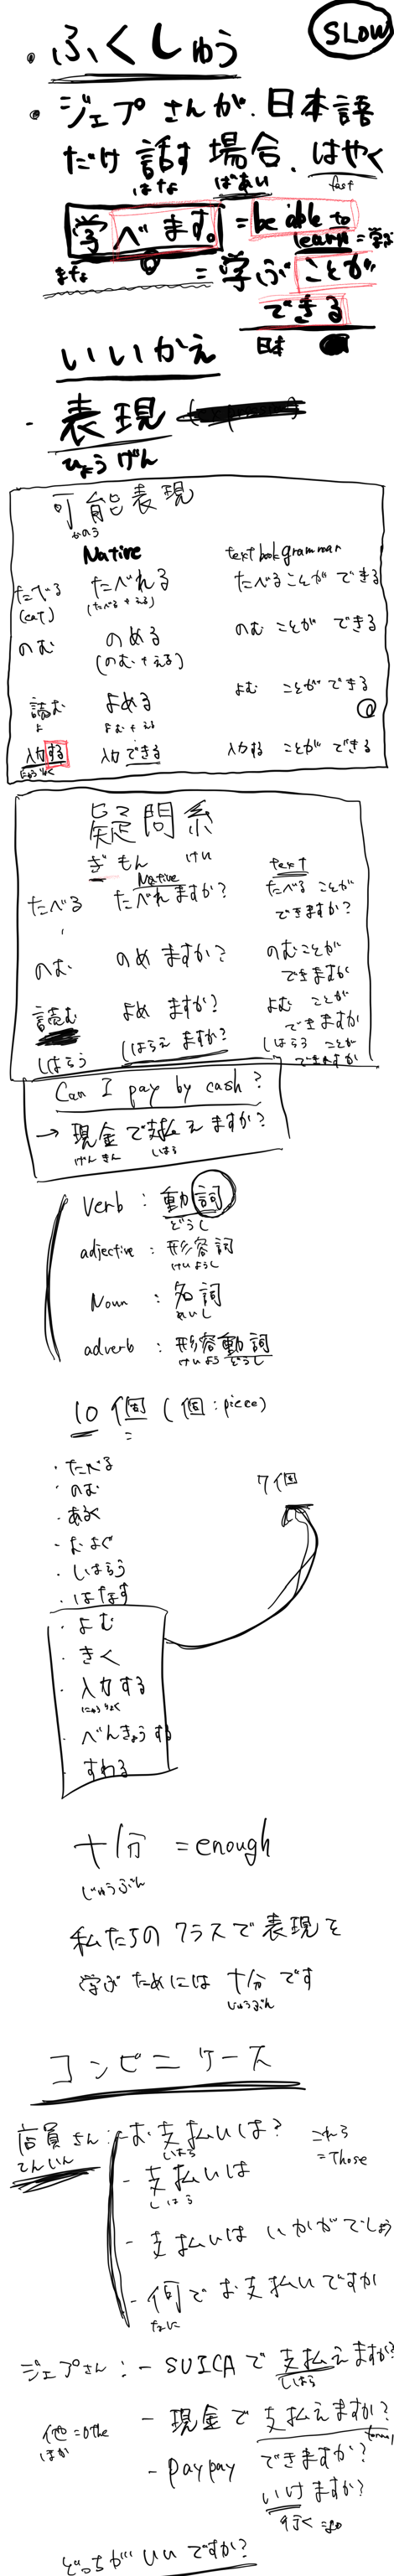 SLOW
・ふくしゅう
・ジェプさんが、日本語
だけ話す場合、はやく
はな ばあい fast
学べます。= be able to
learn = 学ぶ
まな
= 学ぶことが
できる
日本
いいかえ
- 表現
ひょうげん
可能表現
かのう
Native textbook grammar
たべる たべれる たべることができる
(eat) (たべる+える)
のむ のめる のむ ことが できる
(のむ+える)
読む よめる よむ ことが できる
よ よむ+える
入力する 入力できる 入力する ことが できる
にゅうりょく
疑問系
ぎもん けい
Native text
たべる たべれますか? たべる ことが
できますか?
のむ のめ ますか? のむことが
できますか
読む よめ ますか? よむ ことが
できますか
しはらう しはらえ ますか? しはらう ことが
できますか
Can I pay by cash?
→ 現金で支払えますか?
げんきん しはら
Verb : 動詞
どうし
adjective : 形容詞
けいようし
Noun : 名詞
めいし
adverb : 形容動詞
けいよう どうし
10個 (個:piece)
・たべる
・のむ
・あるく
・およぐ
・しはらう
・はなす
・よむ
・きく
・入力する
にゅうりょく
・べんきょうする
・すわる
7個
十分 = enough
じゅうぶん
私たちのクラスで表現を
学ぶためには 十分です
じゅうぶん
コンビニケース
店員さん:- お支払いは?
てんいん しはら
これら
= Those
- 支払いは
しはら
- 支払いは いかがでしょう
- 何でお支払いですか
なに
ジェプさん:- SUICAで支払えますか?
しはら
- 現金で支払えますか?
他 = othe
ほか
- paypay できますか?
いけますか?
行く = go
どっちがいいですか?